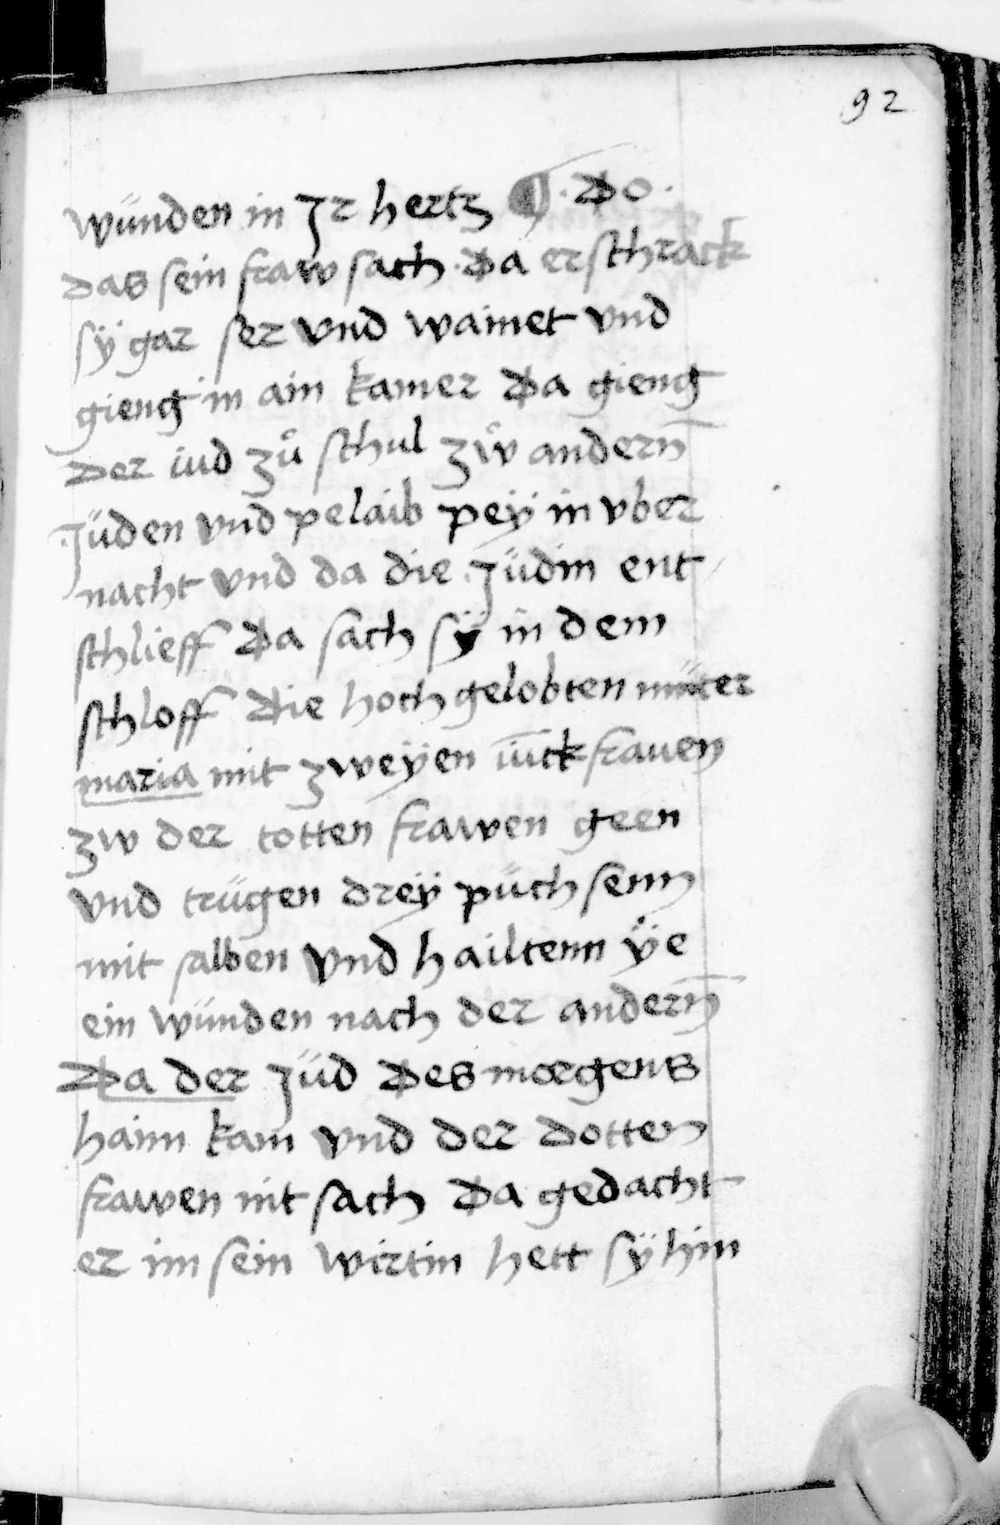 92
wünden in Jr hertz ¶ · Do ·
das sein fraw sach · Da erschrack
sÿ gar ser vnd wainet vnd
gieng in ain kamer Da gieng
Der iud zů schul zẘ andern̄
Jüden vnd pelaib peÿ in vber
nacht vnd da die Jüdin ent
schlieff Da sach sÿ in dem
schloff Die hoch gelobten müter
maria mit zweÿen iūckfrauen
zw der totten frawen geen
vnd trügen dreÿ püchsenn
mit salben vnd hailtenn ÿe
ein wünden nach der andern̄
Da der Jüd Des morgens
haim kam vnd der Dotten
frawen nit sach Da gedacht
er im sein wirtin hett sÿ hin